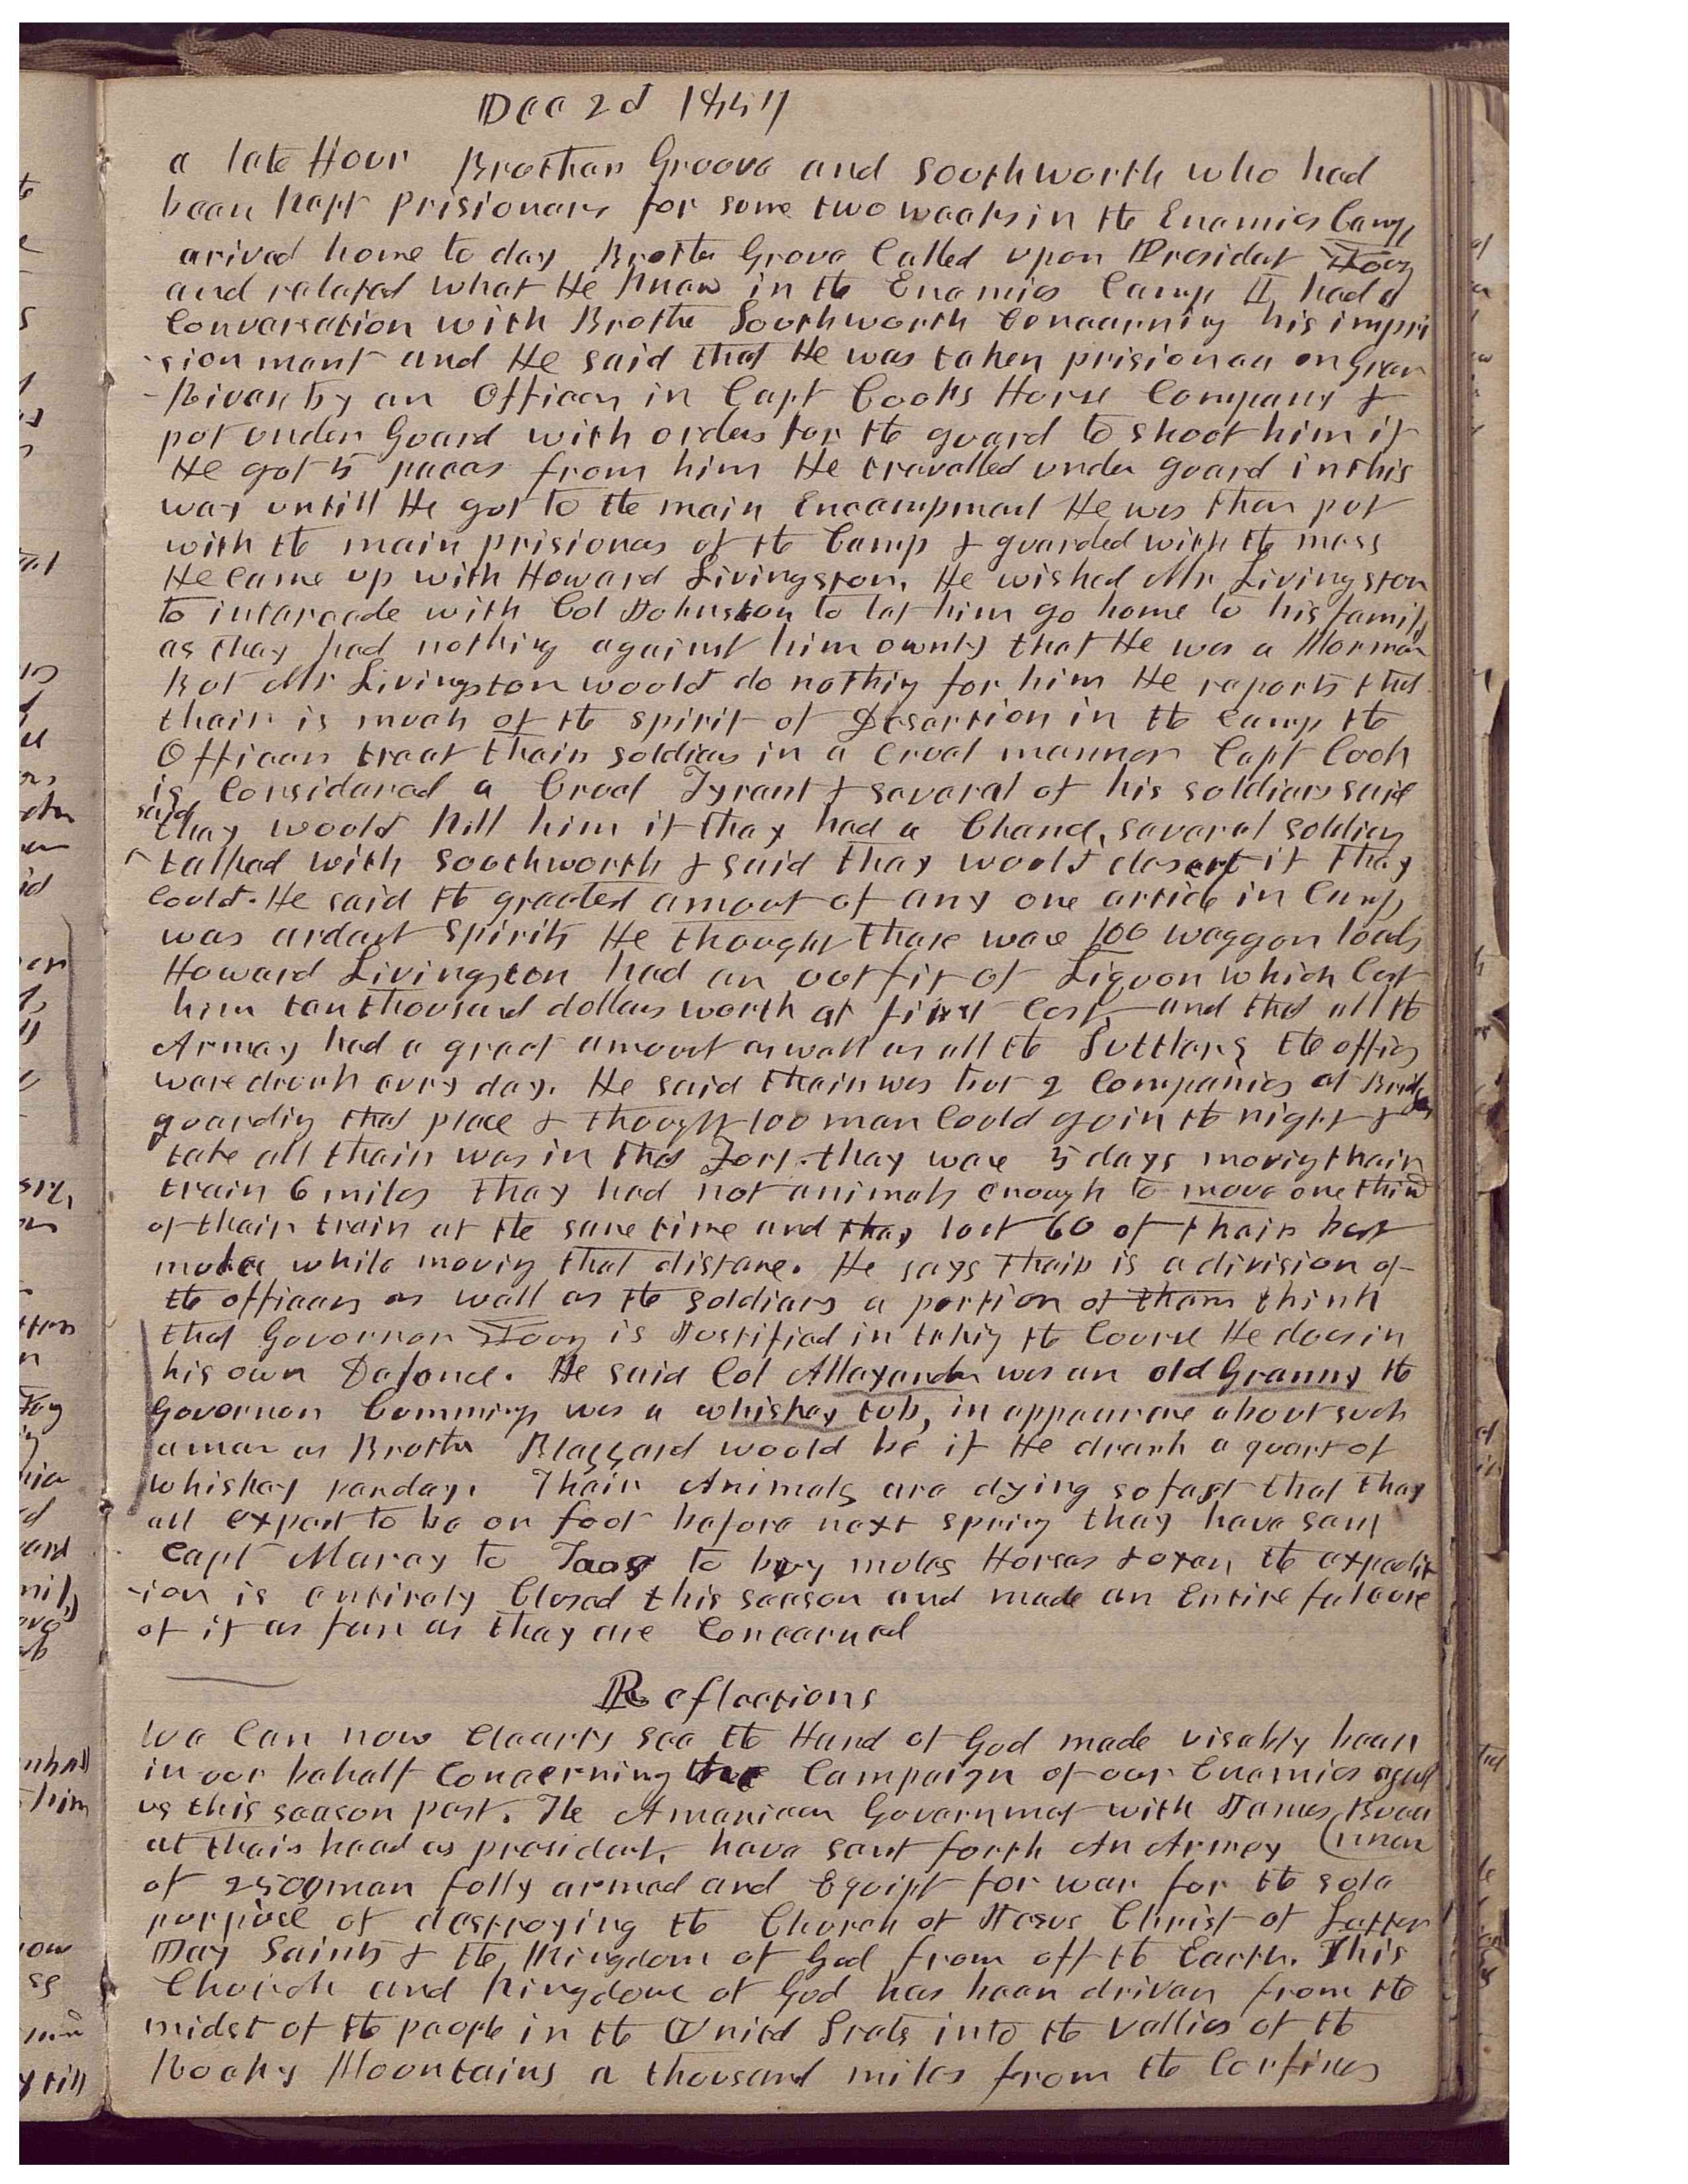 Dec 2d 1857
a late Hour Brother Groove and Southworth who had
been kept prisioners for some two weeks in the Enemies Camp
arived home to day Brother Grove Called upon Presidet Young
and related what He knew in the Enemies Camp I, had a
Conversation with Brothe Southworth Concerning his impri
-sionment and He said that He was taken prisioner on Gren
-River by an Officer in Capt Cooks Horse Company &
put under Guard with orders for the guard to shoot him if
He got 5 paces from him He travelled under guard in this
way untill He got to the main Encampment He was then put
with the main prisioners of the Camp & guarded with the mess
He came up with Howard Livingston, He wished Mr Livingston
to interceede with Col Johnston to let him go home to his family
as they had nothing against him ownly that He was a Mormon
But Mr Livingston would do nothing for him He reports that
their is much of the spirit of Desertion in the camp the
Officers treat their soldiers in a cruel manner Capt Cook
is Considered a Cruel Tyrant & several of his soldiers said
said
they would kill him if they had a Chance, several soldiers
talked with Southworth & said they would desert if they
could. He said the greatest amout of any one article in Camp
was ardent Spirits He thought there were 100 waggon loads
Howard Livingston had an outfit of Liquor which Cost
him ten thousand dollars worth at first Cost, and that all the
Armey had a great amout as well as all the Suttlers the offics
were drunk evry day. He said their was but 2 Companies at Bridger
guardig that place & thought 100 men Could go in the night &
take all their was in that Fort. they were 5 days movig their
train 6 miles They had not animals enough to move one third
of their train at the same time and they lost 60 of their best
mules while movig that distance. He says their is a division of
the officers as well as the soldiers a portion of them think
that Governor Young is Justified in takig the Course He does in
his own Defence. He said Col Allexander was an old Granny the
Governor Cummings was a whiskey tub, in appearance about such
a man as Brother Blezzard would be if He drank a quart of
whiskey perday. Their Animals are dying so fast that they
all expect to be on foot before next spring they have sent
Capt Marcy to Taos to buy mules Horses & oxen, the expedit
-ion is entirely Closed this season and made an Entire faleure
of it as far as they are Concerned
Reflections
We Can now clearly see the Hand of God made visably bear
in our behalf Concerning the Campaign of our Enemies agast
us this season past. The American Governmet with James Buca
at their head as president, have sent forth An Armey (nnan
of 2500 men fully armed and Equipt for war for the sole
purpose of destroying the Church of Jesus Christ of Latter
Day Saints & the Kingdom of God from off the Earth. This
Church and Kingdom of God has been driven from the
midst of the people in the United States into the vallies of the
Rocky Mountains a thousand miles from the Confines